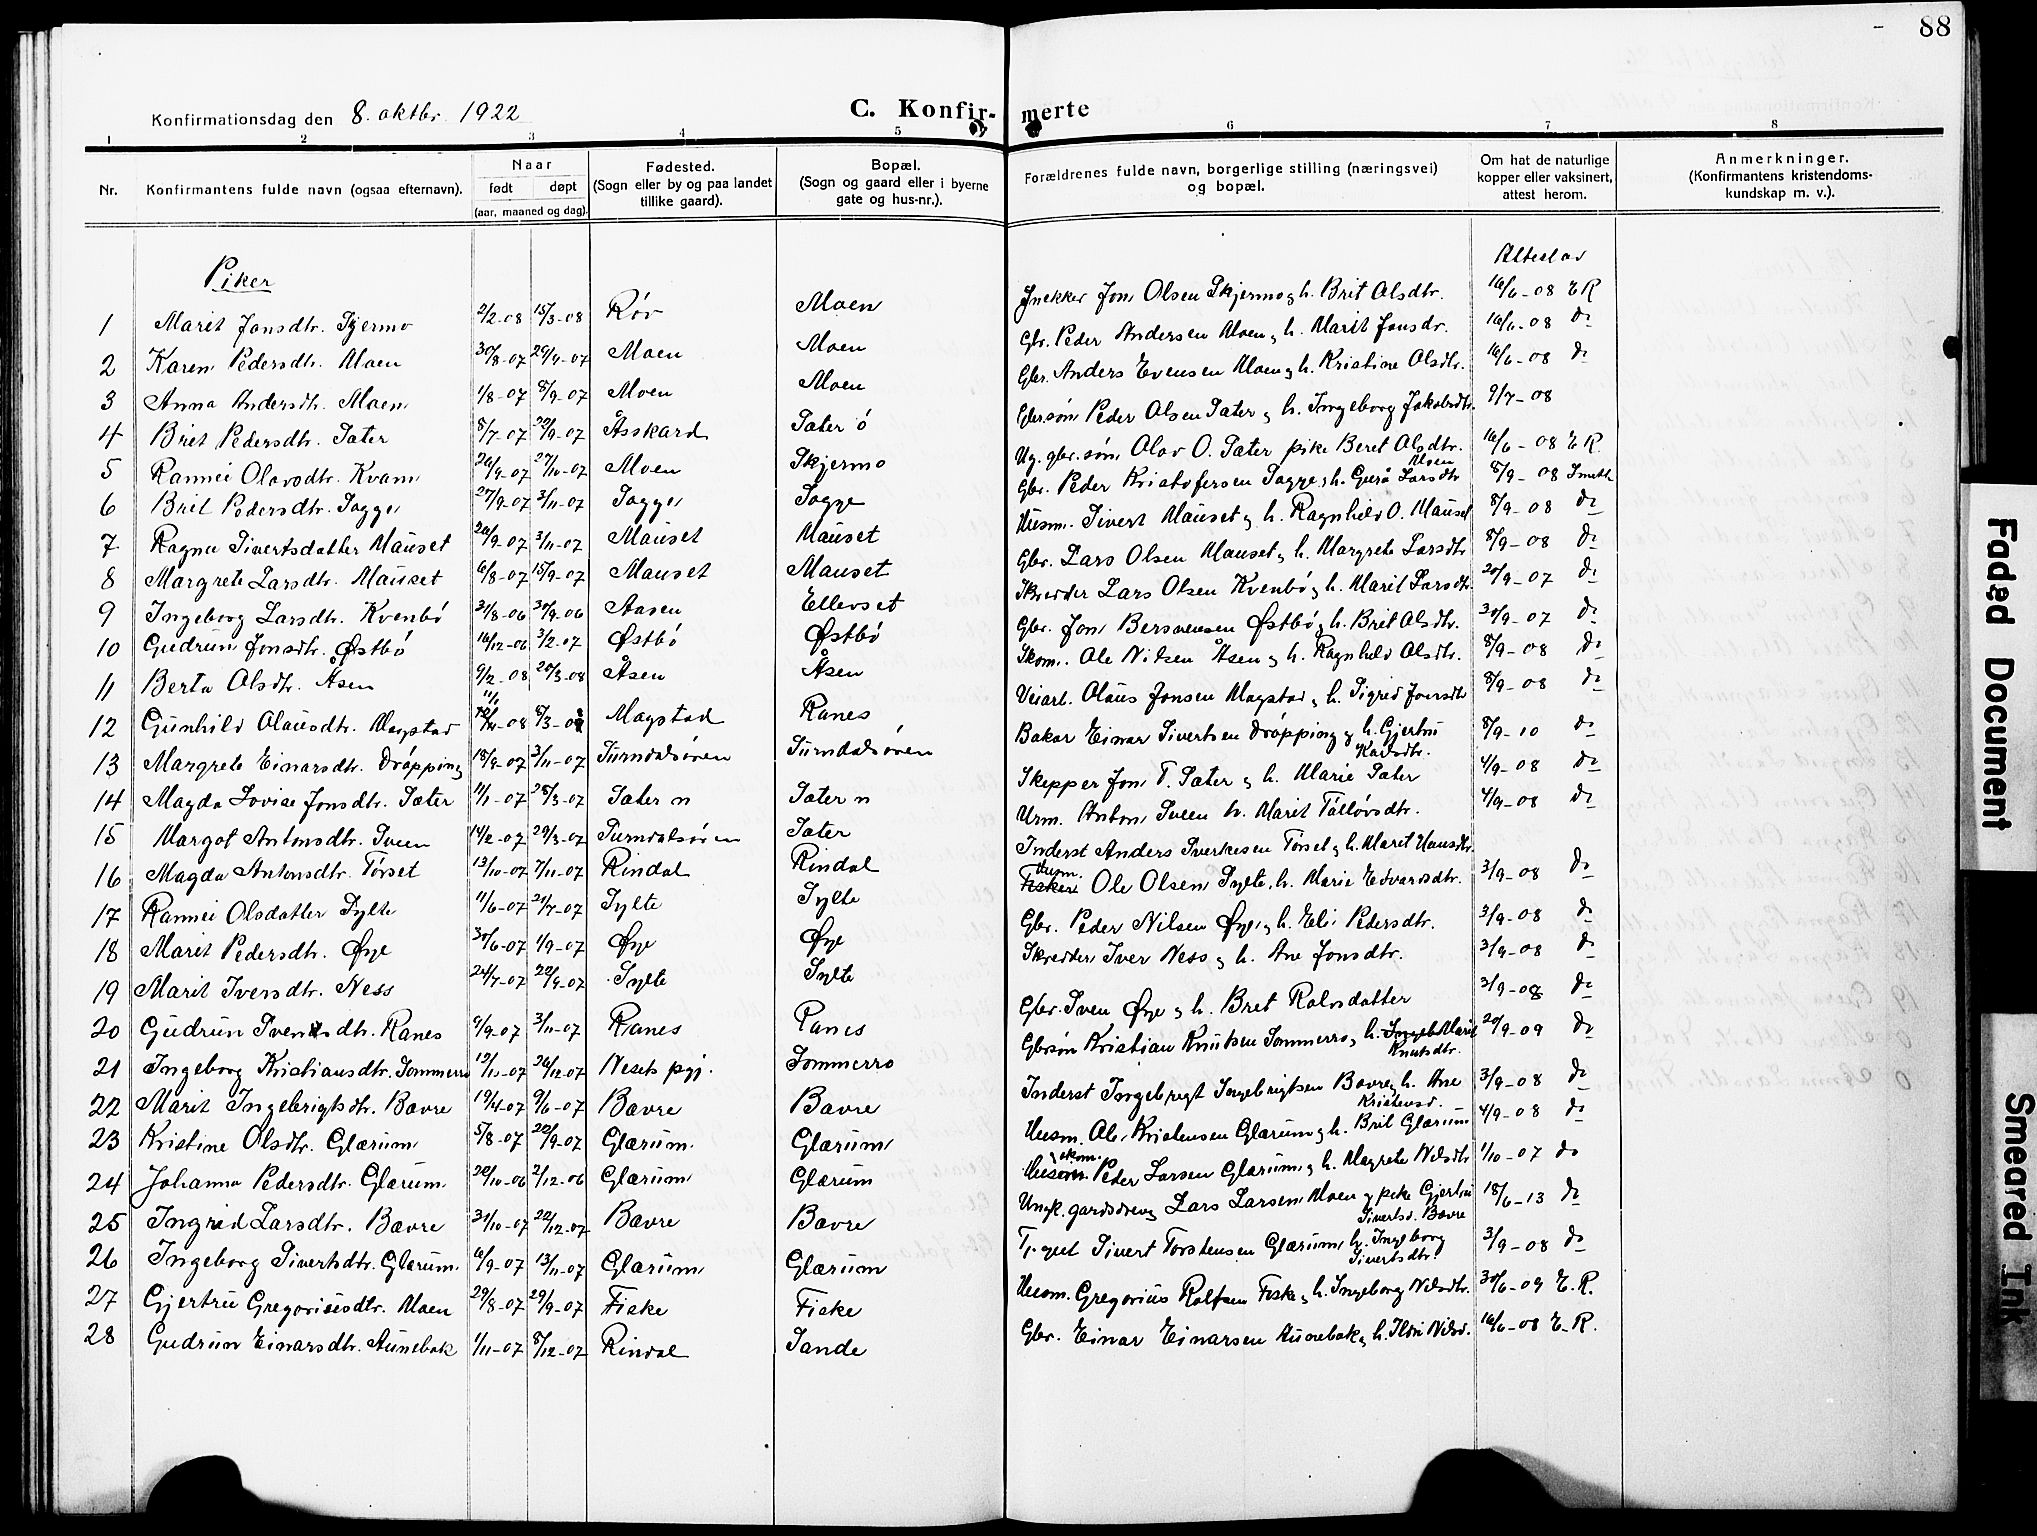 88
Konfirmationsdag den 8. oktbr. 1922
C. Konfir- merte
1 2 3 4 5 6 7 8
Nr. Konfirmantens fulde navn (ogsaa efternavn). Naar født døpt (aar, maaned og dag). Fødested. (Sogn eller by og paa landet tillike gaard). Bopæl. (Sogn og gaard eller i byerne gate og hus-nr.). Forældrenes fulde navn, borgerlige stilling (næringsvei) og bopæl. Om hat de naturlige kopper eller vaksinert, attest herom. Anmerkninger. (Konfirmantens kristendoms- kundskap m. v.).
Piker
1 Marit Jonsdtr. Skjermo 2/2-08 15/3-08 Røv Moen Snekker Jon Olsen Skjermo g h. Brit Olsdtr. 16/6-08 E R
2 Karen Pedersdtr. Moen 30/8-07 29/9-07 Moen Moen Gbr. Peder Andersen Moen g h. Marit Jonsdr. 16/6-08 do
3 Anna Andersdtr. Moen 1/8-07 8/9-07 Moen Moen Gbr. Anders Evensen Moen g h. Kristine Olsdtr. 16/6-08 do
4 Brit Pedersdtr. Sæter 8/7-07 22/9-07 Åsskard Sæter ö Gbrsøn Peder Olsen Sæter g h. Ingeborg Jakobsdtr. 9/7-08
5 Rannei Olavsdtr. Kvam 26/9-07 27/10-07 Moen Skjermo Ug. gbr. søn Olav O. Sæter pike Beret Olsdtr. Moen 16/6-08 E R.
6 Brit Pedersdtr. Sogge 27/9-07 3/11-07 Sogge Sogge Gbr. Peder Kristofersen Sogge g h. Guro Larsdtr 8/9-08 Smeth
7 Ragna Sivertsdatter Mauset 26/9-07 3/11-07 Mauset Mauset Husm. Sivert Mauset g h. Ragnhild O. Mauset 8/9-08 do
8 Margrete Larsdtr. Mauset 6/8-07 15/9-07 Mauset Mauset Gbr. Lars Olsen Mauset g h. Margrete Larsdtr 8/9-08 do
9 Ingeborg Larsdtr. Kvenbö 31/8-06 30/9-06 Aasen Ellevset Skredder Lars Olsen Kvenbö g h. Marit Larsdtr. 20/9-07 do
10 Gudrun Jonsdtr. Østbö 16/12-06 3/2-07 Østbö Østbö Gbr. Jon Bersvensen Østbö g h. Brit Olsdtr. 30/9-07 do
11 Berta Olsdtr. Åsen 9/2-08 20/3-08 Åsen Åsen Skom. Ole Nilsen Åsen g h. Ragnhild Olsdtr. 8/9-08 do
12 Gunhild Olausdtr. Magstad 11/1 -08 8/3-08 Magstad Ranes Veiarb. Olaus Jonsen Magstad g h. Sigrid Jonsdtr 8/9-08 do
13 Margrete Einarsdtr. Dröpping 18/9-07 3/11-07 Surndalsören Surndalsören Baker Einar Sivertsen Dröpping g h. Gjertru Karlsdtr. 8/9-10 do
14 Magda Lovise Jonsdtr. Sæter 11/1-07 28/3-07 Sæter n Sæter n Skepper Jon T. Sæter g h. Marie Sæter 4/9-08 do
15 Margot Antonsdtr. Sveen 14/2-07 29/3-07 Surndalsören Sæter Urm. Anton Sveen h. Marit Tallövsdtr. 4/9-08 do
16 Magda Antonsdtr. Törset 13/10-07 7/11-07 Rindal Rindal Inderst Anders Sverkesen Törset g h. Marit Hansdtr.
17 Rannei Olsdatter Sylte 11/6-07 21/7-07 Sylte Sylte Fisker Husm. Ole Olsen Sylte, h. Marie Edvardsdtr. 3/9-08 do
18 Marit Pedersdtr. Øye 30/6-07 1/9-07 Øye Øye Gbr. Peder Nilsen Øye g h. Eli Pedersdtr. 3/9-08 do
19 Marit Iversdtr. Ness 24/7-07 22/9-07 Sylte Sylte Skredder Iver Ness g h. Ane Jonsdtr. 3/9-08 do
20 Gudrun Svensdtr. Ranes 9/9-07 3/11-07 Ranes Ranes Gbr. Sven Øye g h. Bret Rolvsdatter 3/9-08 do
21 Ingeborg Kristiansdtr. Sommerro 19/11-07 26/12-07 Nesets pgj. Sommerro Gbrsøn Kristian Knutsen Sommerro g h. Ingeb Marit Knutsdtr. 20/9-09 do
22 Marit Ingebrigtsdtr. Bævre 19/4-07 9/6-07 Bævre Bævre Inderst Ingebrigt Ingebrigtsen Bævre g h. Ane Kristensd. 3/9-08 do
23 Kristine Olsdtr. Glærum 5/8-07 22/9-07 Glærum Glærum Husm. Ole Kristensen Glærum g h. Brit Glærum 4/9-08 do
24 Johanna Pedersdtr. Glærum 20/10-06 2/12-06 Glærum Glærum Husm skom. Peder Larsen Glærum g h. Magrete Nilsdtr 1/10-07 do
25 Ingrid Larsdtr. Bævre 31/10-07 22/12-07 Bævre Bævre Ungk. gardsdreng Lars Larsen Moen g pike Gjertru Sivertsd. Bævre 18/6-13 do
26 Ingeborg Sivertsdtr. Glærum 6/9-07 13/11-07 Glærum Glærum Sivert Torstensen Glærum h. Ingeborg Sivertsdtr. 3/9-08 do
27 Gjertru Gregoriusdtr. Moen 29/8-07 29/9-07 Fiske Fiske Husm. Gregorius Rolfsen Fiske g h. Ingeborg Nilsdtr. 30/6-09 E. R.
28 Gudrun Einarsdtr. Aunebak 1/11-07 8/12-07 Rindal Sande Gbr. Einar Einarsen Aunebak g h. Ildri Nilsd. 16/6-08 E. R.
Faded Document
Smeared Ink